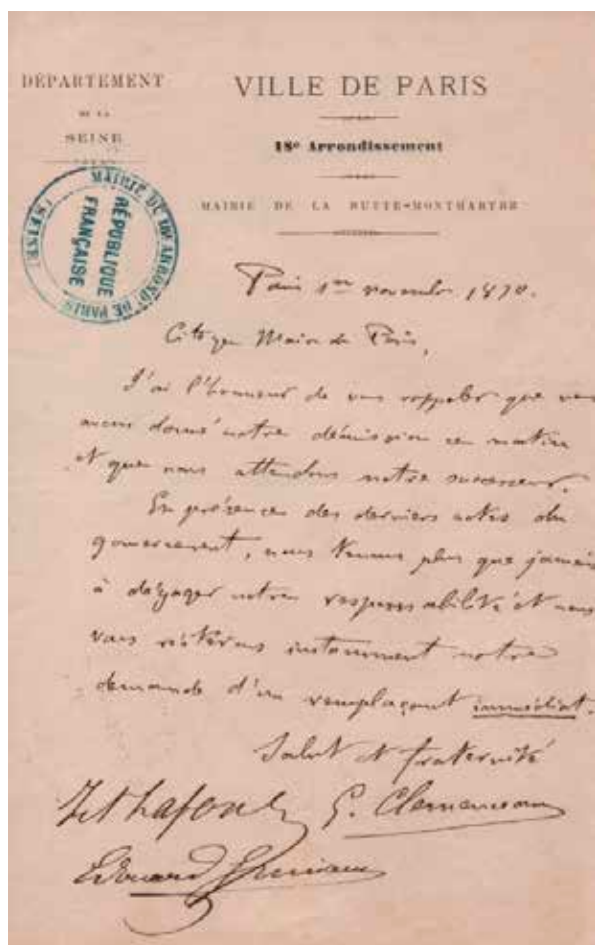 DÉPARTEMENT
DE LA
SEINE
VILLE DE PARIS
18e Arrondissement
MAIRIE DE LA BUTTE-MONTMARTRE
MAIRIE DU 18e ARRONDt DE PARIS
(SEINE)
RÉPUBLIQUE
FRANÇAISE
Paris 1er novembre 1870.
Citoyen Maire de Paris,
J'ai l'honneur de vous rappeler que nous
avons donné notre démission ce matin
et que nous attendons notre successeur.
En présence des derniers actes du
gouvernement, nous tenons plus que jamais
à dégager notre responsabilité et nous
vous réitérons instamment notre
demande d'un remplaçant immédiat.
Salut et fraternité
Lafont G. Clemenceau
Edouard